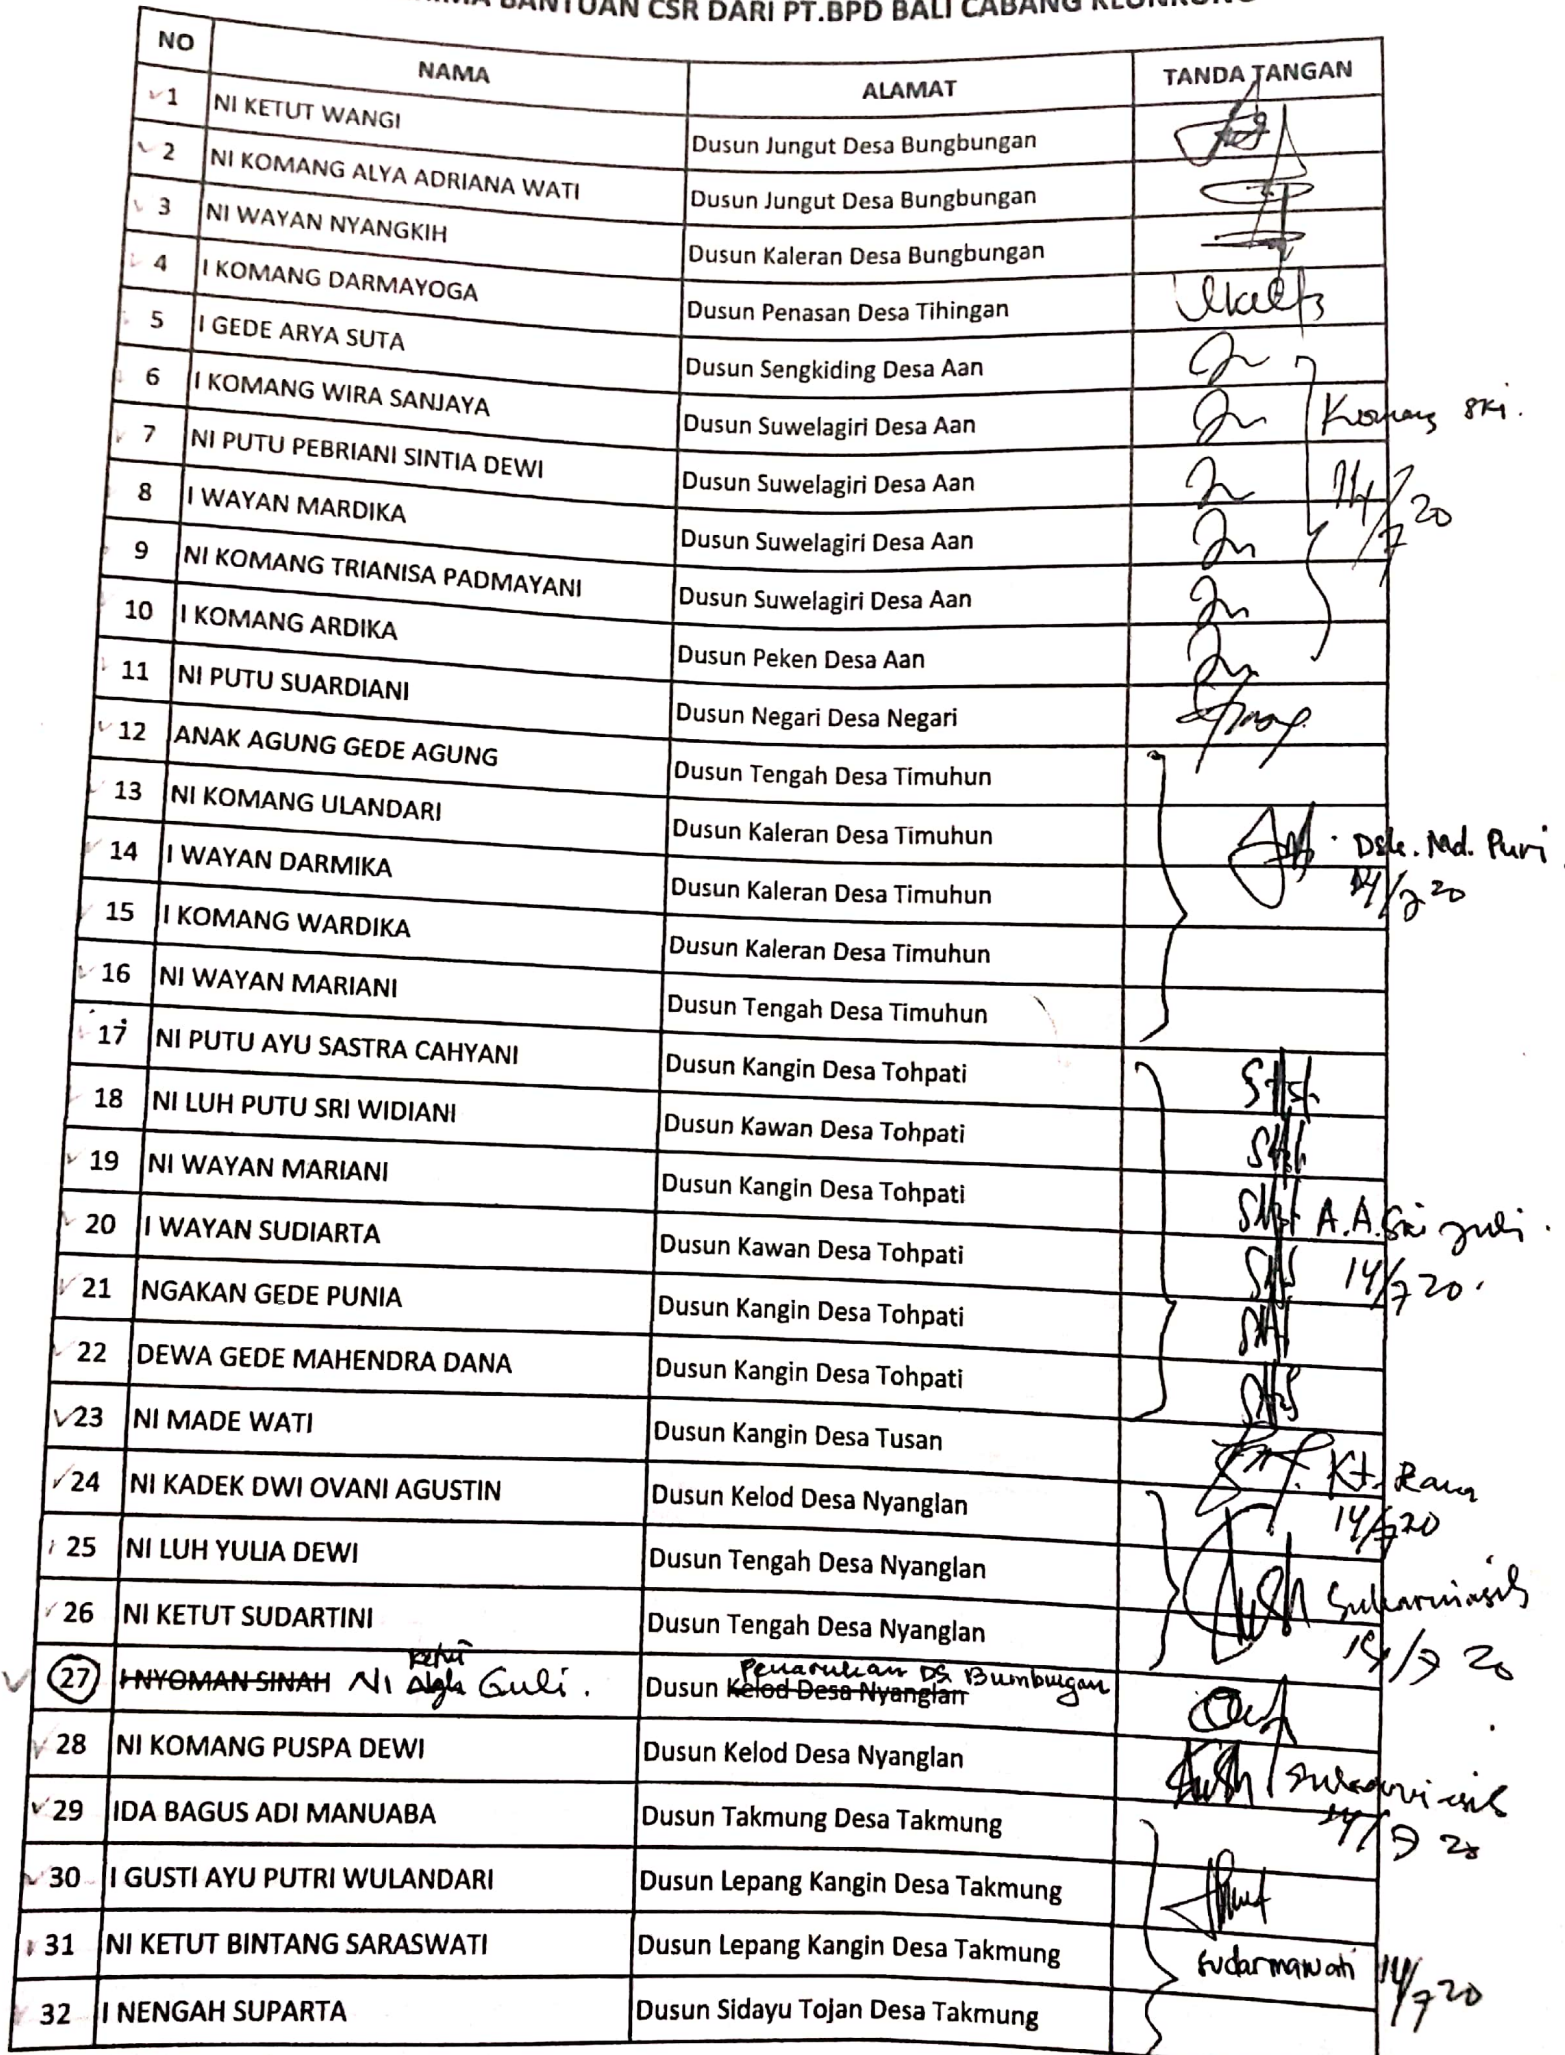 BANTUAN CSR DARI PT.BPD BALI CABANG
NO NAMA ALAMAT TANDA TANGAN
1 NI KETUT WANGI Dusun Jungut Desa Bungbungan
2 NI KOMANG ALYA ADRIANA WATI Dusun Jungut Desa Bungbungan
3 NI WAYAN NYANGKIH Dusun Kaleran Desa Bungbungan
4 I KOMANG DARMAYOGA Dusun Penasan Desa Tihingan
5 I GEDE ARYA SUTA Dusun Sengkiding Desa Aan
6 I KOMANG WIRA SANJAYA Dusun Suwelagiri Desa Aan Komang ski.
7 NI PUTU PEBRIANI SINTIA DEWI Dusun Suwelagiri Desa Aan 14/7 20
8 I WAYAN MARDIKA Dusun Suwelagiri Desa Aan
9 NI KOMANG TRIANISA PADMAYANI Dusun Suwelagiri Desa Aan
10 I KOMANG ARDIKA Dusun Peken Desa Aan
11 NI PUTU SUARDIANI Dusun Negari Desa Negari
12 ANAK AGUNG GEDE AGUNG Dusun Tengah Desa Timuhun
13 NI KOMANG ULANDARI Dusun Kaleran Desa Timuhun Dsk. Md. Puri
14 I WAYAN DARMIKA Dusun Kaleran Desa Timuhun 14/7 20
15 I KOMANG WARDIKA Dusun Kaleran Desa Timuhun
16 NI WAYAN MARIANI Dusun Tengah Desa Timuhun
17 NI PUTU AYU SASTRA CAHYANI Dusun Kangin Desa Tohpati
18 NI LUH PUTU SRI WIDIANI Dusun Kawan Desa Tohpati
19 NI WAYAN MARIANI Dusun Kangin Desa Tohpati A.A. Sri Juli
20 I WAYAN SUDIARTA Dusun Kawan Desa Tohpati 14/7 20.
21 NGAKAN GEDE PUNIA Dusun Kangin Desa Tohpati
22 DEWA GEDE MAHENDRA DANA Dusun Kangin Desa Tohpati
23 NI MADE WATI Dusun Kangin Desa Tusan Kt. Rana
24 NI KADEK DWI OVANI AGUSTIN Dusun Kelod Desa Nyanglan 14/7 20
25 NI LUH YULIA DEWI Dusun Tengah Desa Nyanglan Sukarniasih
26 NI KETUT SUDARTINI Dusun Tengah Desa Nyanglan 14/7 20
27 I NYOMAN SINAH NI Ketut Guli. Dusun Kelod Desa Nyanglan Penarukan Ds Bumbungan
28 NI KOMANG PUSPA DEWI Dusun Kelod Desa Nyanglan Sukarniasih
29 IDA BAGUS ADI MANUABA Dusun Takmung Desa Takmung 14/7 20
30 I GUSTI AYU PUTRI WULANDARI Dusun Lepang Kangin Desa Takmung
31 NI KETUT BINTANG SARASWATI Dusun Lepang Kangin Desa Takmung Sudarmawati 14/7 20
32 I NENGAH SUPARTA Dusun Sidayu Tojan Desa Takmung